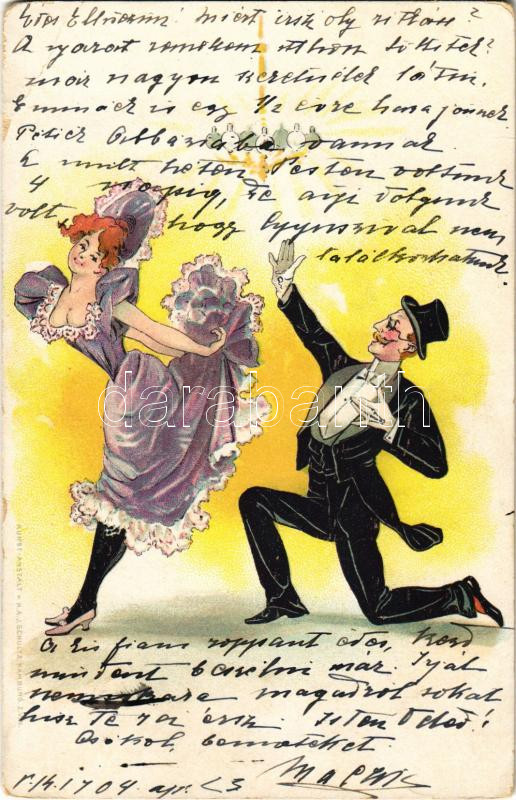 Édes
miért írsz oly ritkán?
A nyarat remélem itthon töltitek?
már nagyon szeretnélek látni.
Emmáék is egy ½ évre haza jönnek
Péterék Abbáziába vannak
A mult héten Pesten voltunk
4 napig, de annyi dolgunk
volt, hogy
nem
találkozhattunk.
darabanth
KUNST-ANSTALT v. H.A.J. SCHULTZ, HAMBURG
A kis fiam roppant édes, kezd
mindent beszélni már. Írjál
magadról sokat
hisz Te rá érsz. Isten Veled!
Csókol benneteket
1904 apr. 23